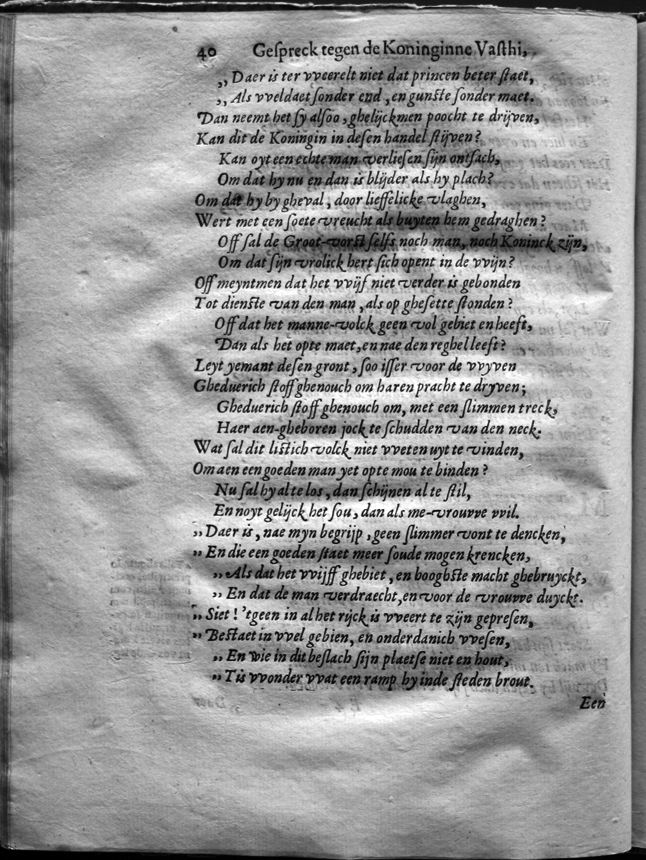 40 Geſpreck tegen de Koninginne Vaſthi,
„ Daer is ter vveerelt niet dat princen beter ſtaet,
„ Als vveldaet ſonder end, en gunſte ſonder maet.
Dan neemt het ſy alſoo, ghelijckmen poocht te drijven,
Kan dit de Koningin in deſen handel ſtijven?
Kan oyt een echte man verlieſen ſijn ontſach,
Om dat hy nu en dan is blijder als hy plach?
Om dat hy by gheval, door lieffelicke vlaghen,
Wert met een ſoete vreucht als buyten hem gedraghen?
Off ſal de Groot-vorſt ſelfs noch man, noch Koninck zijn,
Om dat ſijn vrolick hert ſich opent in de vvijn?
Off meyntmen dat het vvijf niet verder is gebonden
Tot dienſte van den man, als op gheſette ſtonden?
Off dat het manne-volck geen vol gebiet en heeft,
Dan als het opte maet, en nae den reghel leeft?
Leyt yemant deſen gront, ſoo iſſer voor de vvyven
Gheduerich ſtoff ghenouch om haren pracht te dryven;
Gheduerich ſtoff ghenouch om, met een ſlimmen treck,
Haer aen-gheboren jock te ſchudden van den neck.
Wat ſal dit liſtich volck niet vveten uyt te vinden,
Om aen een goeden man yet opte mou te binden?
Nu ſal hy al te los, dan ſchijnen al te ſtil,
En noyt gelijck het ſou, dan als me-vrouvve vvil.
„ Daer is, nae myn begrijp, geen ſlimmer vont te dencken,
„ En die een goeden ſtaet meer ſoude mogen krencken,
„ Als dat het vvijff ghebiet, en hooghſte macht ghebruyckt,
„ En dat de man verdraecht, en voor de vrouvve duyckt.
„ Siet! 'tgeen in al het rijck is vveert te zijn gepreſen,
„ Beſtaet in vvel gebien, en onderdanich vveſen,
„ En wie in dit beſlach ſijn plaetſe niet en hout,
„ Tis vvonder vvat een ramp hy inde ſteden brout.
Een